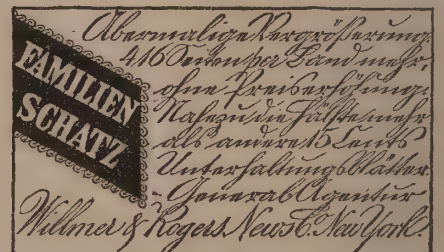 Abermalige Vergrößerung.
416 Seiten per Band mehr,
FAMILIEN
SCHATZ
ohne Preiserhöhung.
Nahezu die Hälfte mehr
als andere 15 Cents
Unterhaltungs Blätter
- General Agentur
Willmer & Rogers News Co. New York.